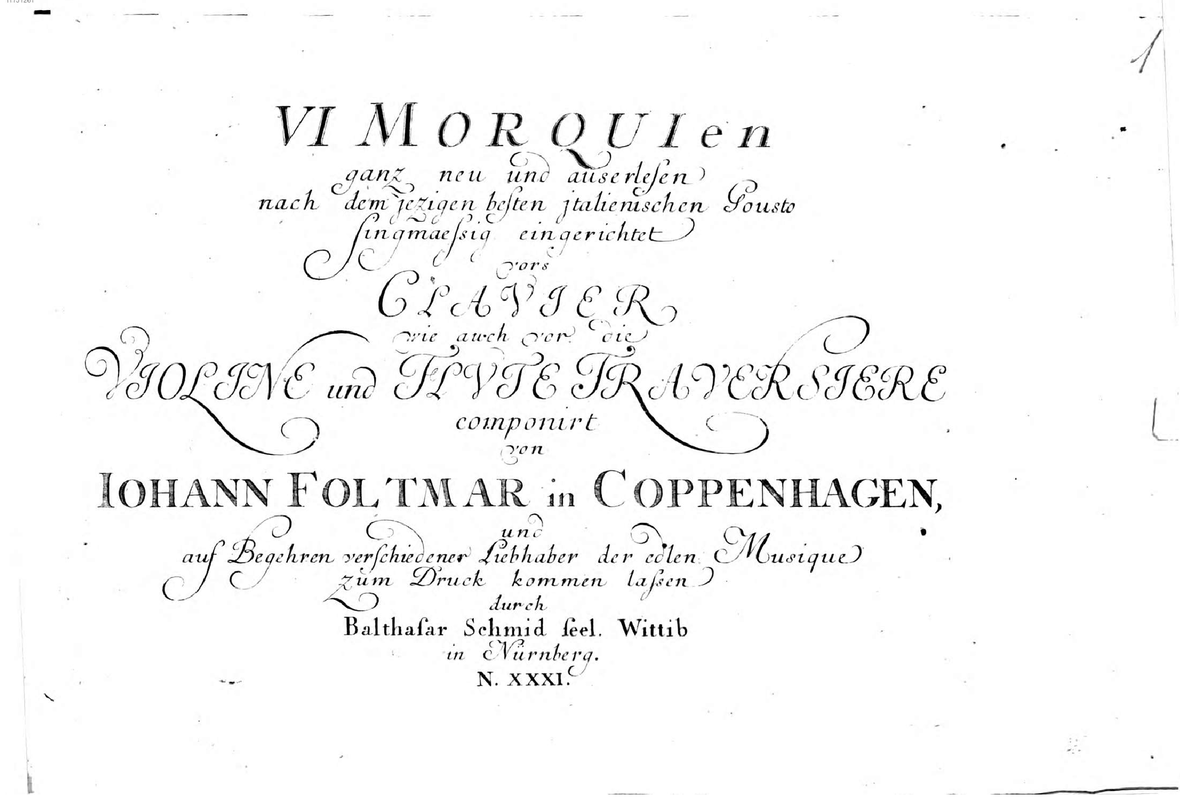 1
VI MORQUIen
ganz neu und auserlesen
nach dem jezigen besten jtalienischen Gousto
singmaessig eingerichtet
vors
CLAVIER
wie auch vor die
VIOLINE und FLVTE TRAVERSIERE
componirt
von
IOHANN FOLTMAR in COPPENHAGEN,
und
auf Begehren verschiedener Liebhaber der edlen Musique
zum Druck kommen lassen
durch
Balthasar Schmid seel. Wittib
in Nürnberg.
N. XXXI.